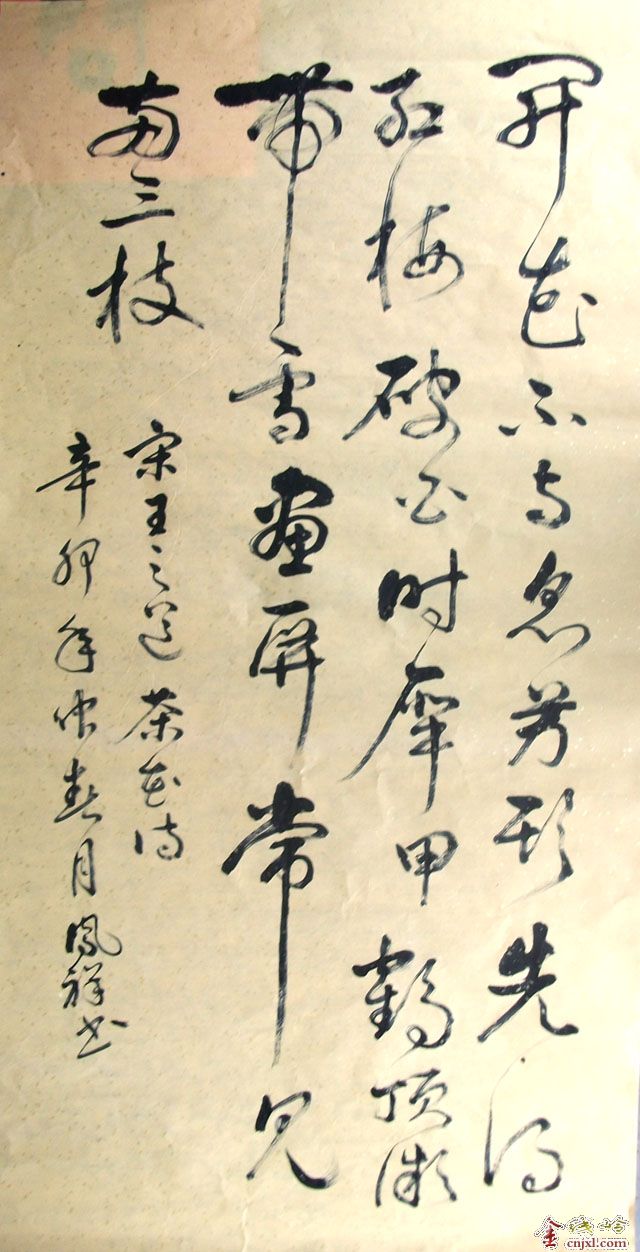 开花不与众芳期先得
红梅破白时犀甲鹤顶微
带雪画屏常见
两三枝
宋王之道茶花诗
辛卯年仲春月凤祥书
cnjxl.com